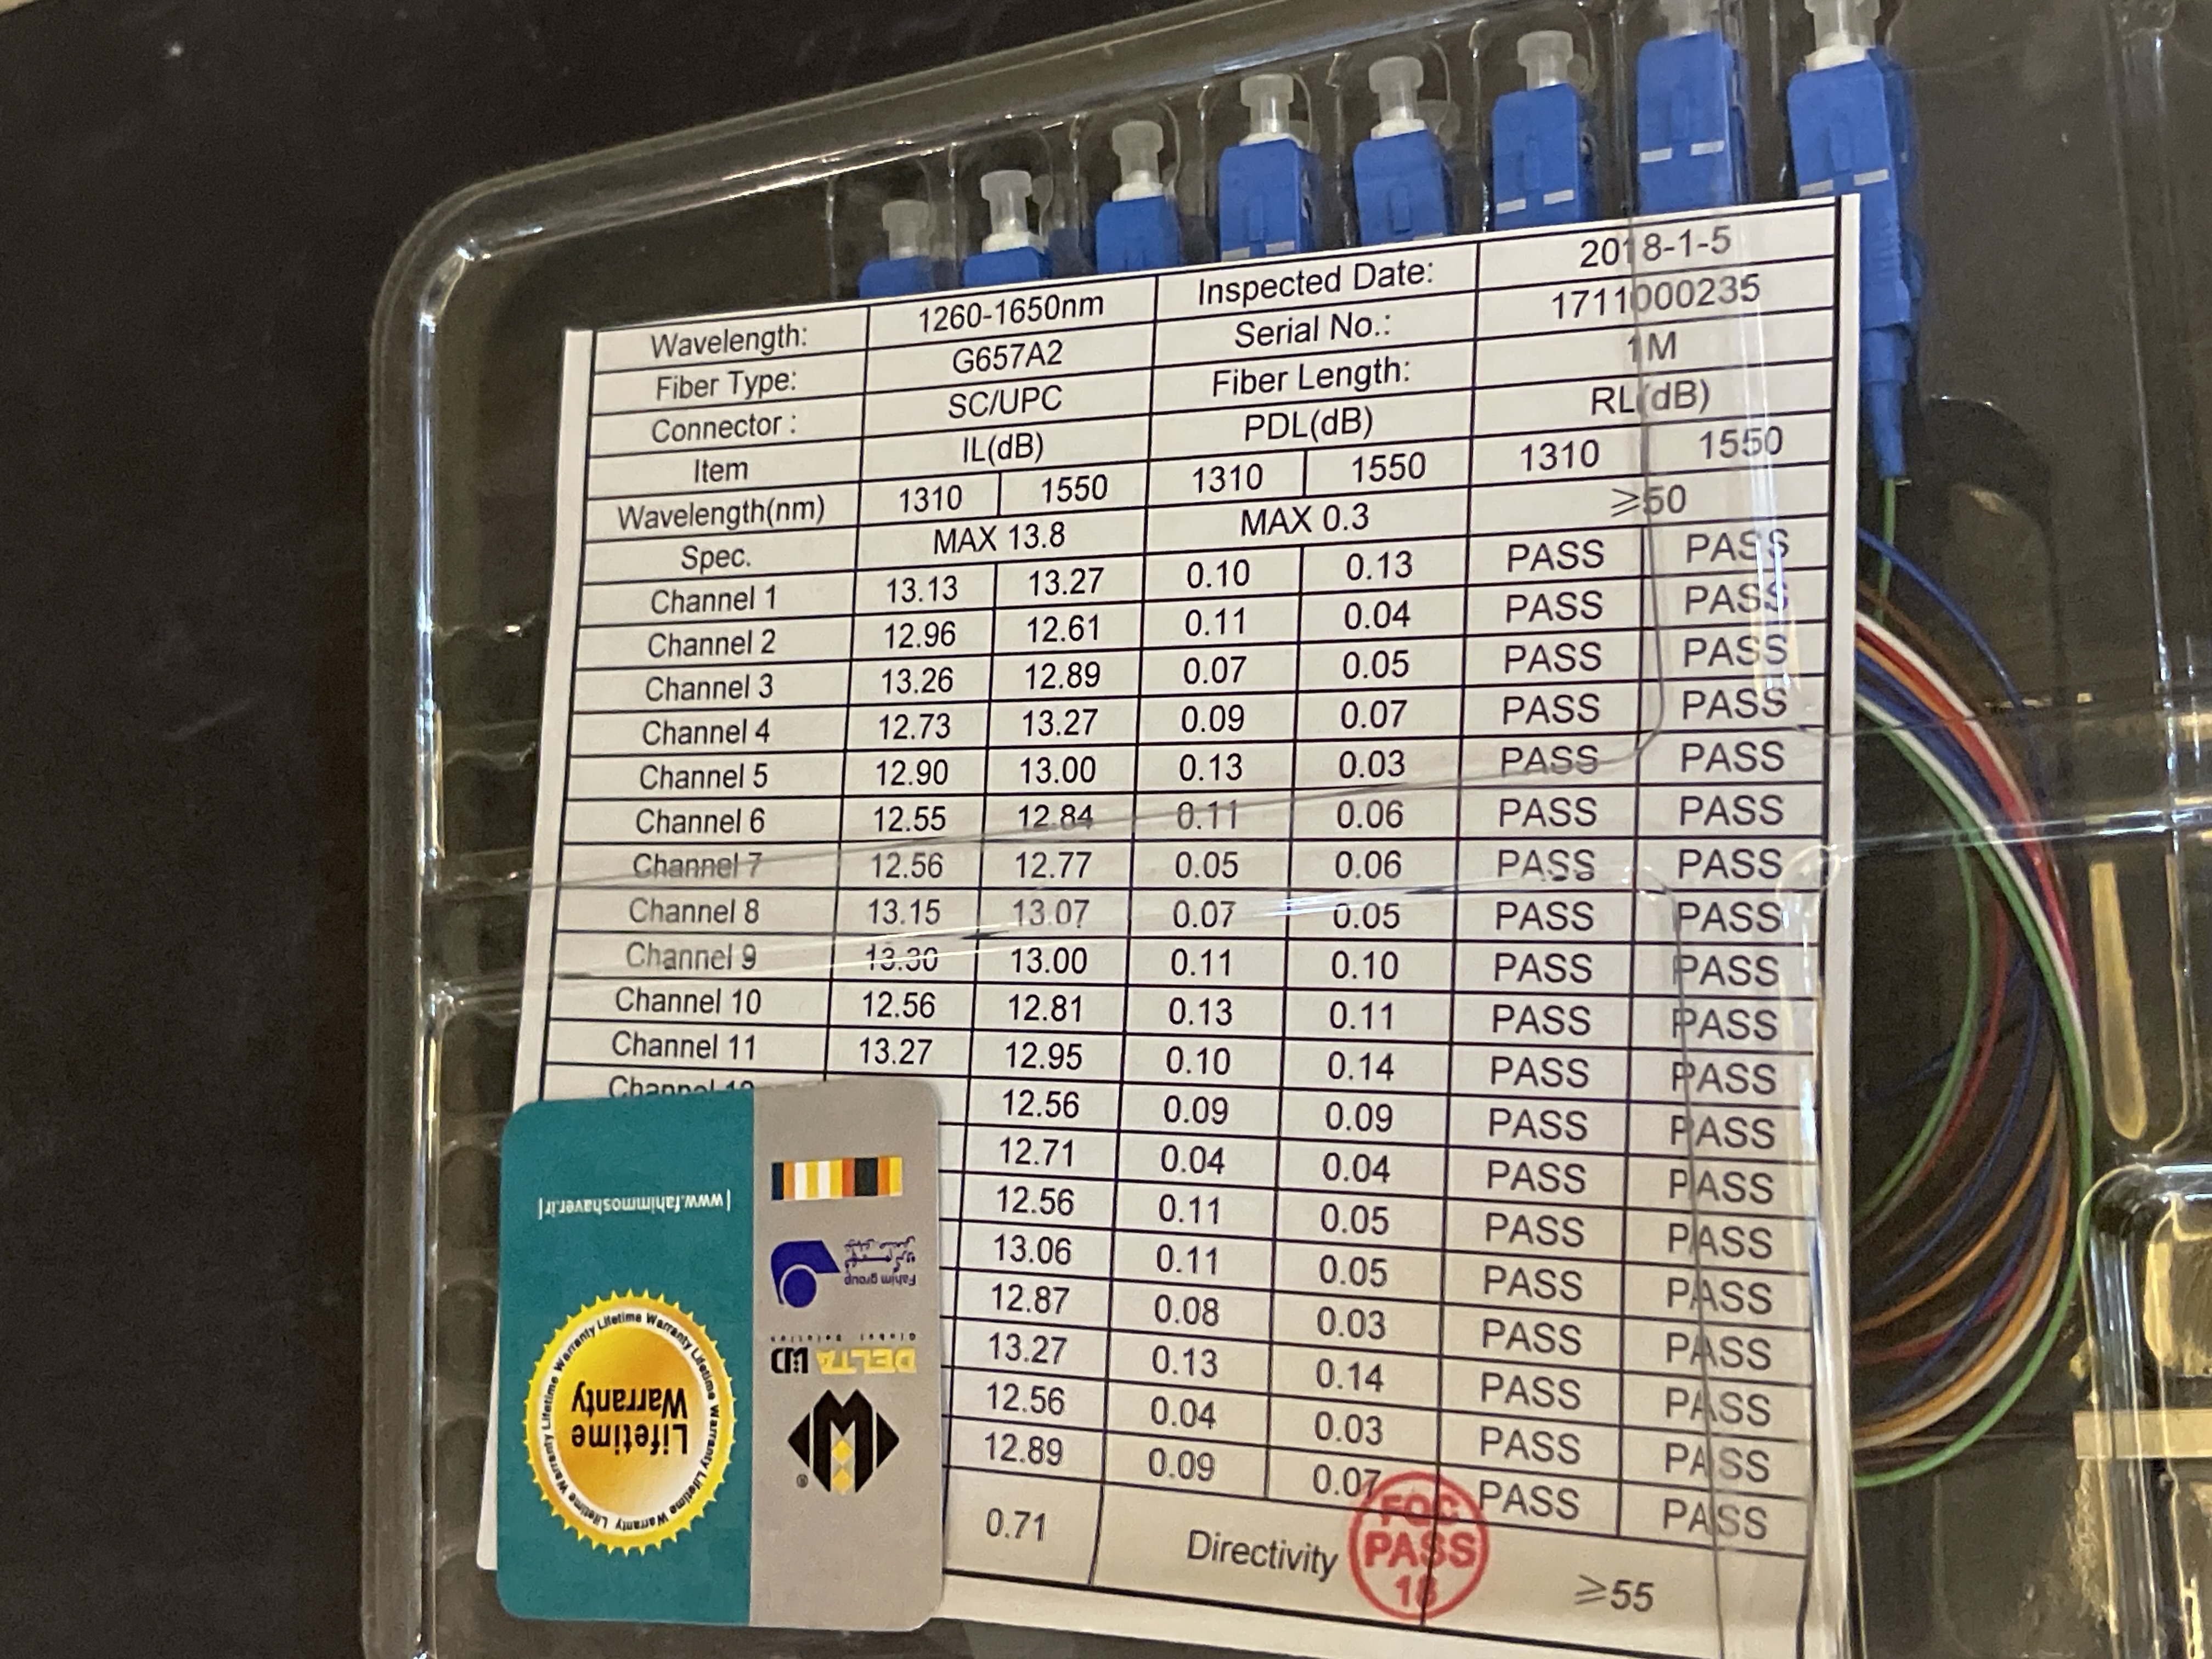 Wavelength: 1260-1650nm Inspected Date: 2018-1-5
Fiber Type: G657A2 Serial No.: 1711000235
Connector : SC/UPC Fiber Length: 1M
Item IL(dB) PDL(dB) RL(dB)
Wavelength(nm) 1310 1550 1310 1550 1310 1550
Spec. MAX 13.8 MAX 0.3 ≥50
Channel 1 13.13 13.27 0.10 0.13 PASS PASS
Channel 2 12.96 12.61 0.11 0.04 PASS PASS
Channel 3 13.26 12.89 0.07 0.05 PASS PASS
Channel 4 12.73 13.27 0.09 0.07 PASS PASS
Channel 5 12.90 13.00 0.13 0.03 PASS PASS
Channel 6 12.55 12.84 0.11 0.06 PASS PASS
Channel 7 12.56 12.77 0.05 0.06 PASS PASS
Channel 8 13.15 13.07 0.07 0.05 PASS PASS
Channel 9 13.30 13.00 0.11 0.10 PASS PASS
Channel 10 12.56 12.81 0.13 0.11 PASS PASS
Channel 11 13.27 12.95 0.10 0.14 PASS PASS
Channel 12 12.56 0.09 0.09 PASS PASS
12.71 0.04 0.04 PASS PASS
12.56 0.11 0.05 PASS PASS
13.06 0.11 0.05 PASS PASS
12.87 0.08 0.03 PASS PASS
13.27 0.13 0.14 PASS PASS
12.56 0.04 0.03 PASS PASS
12.89 0.09 0.07 PASS PASS
0.71 Directivity ≥55
FQC
PASS
18
|www.fahimmoshaver.ir|
Fahim group
DELTA
Lifetime
Warranty
Lifetime Warranty Lifetime Warranty Lifetime Warranty Lifetime Warranty Lifetime Warranty